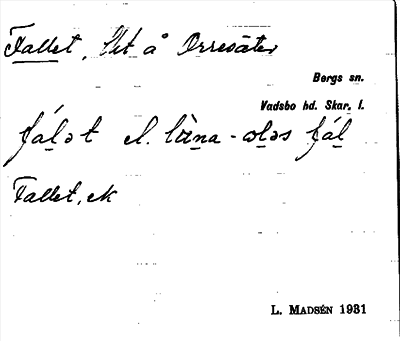 Fallet, lht å Orresäter
Bergs sn.
Vadsbo hd. Skar. l.
fáḷət el. lìna-ɷləs fáḷ
Fallet, ek
L. MADSÉN 1931